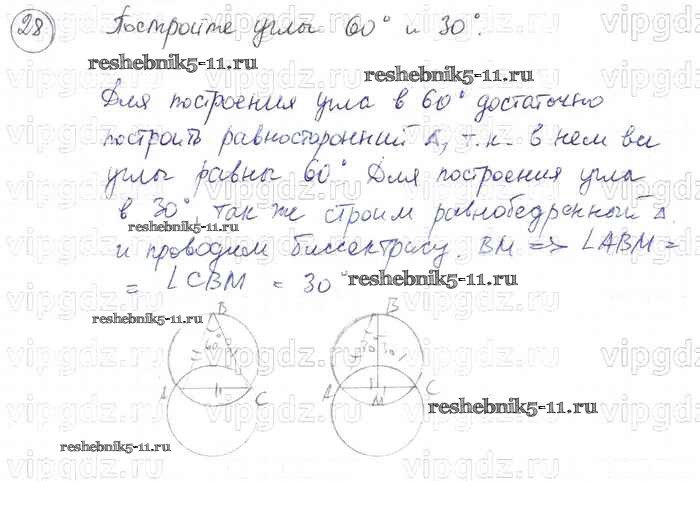 28 Постройте углы 60° и 30°.
reshebnik5-11.ru
reshebnik5-11.ru
Для построения угла в 60° достаточно
построить равносторонний Δ, т.к. в нем все
углы равны 60° Для построения угла
в 30°, так же строим равнобедренный Δ.
reshebnik5-11.ru
и проводим биссектрису. BM => ∠ABM =
= ∠CBM = 30°
reshebnik5-11.ru
B B
reshebnik5-11.ru
60°
A C A M C
reshebnik5-11.ru
reshebnik5-11.ru
vipgdz.ru